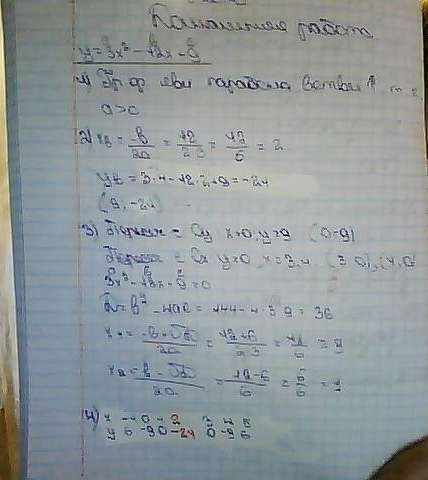 Домашняя работа
y=3x²-12x-9
1) Гр. ф. яви парабола ветви ↑ т. к.
a>0
2) xв = -b/2a = 12/2·3 = 12/6 = 2
yв = 3·4-12·2+9=-24
(9;-24)
3) Перес = Оy x=0, y=9 (0-9)
Перес = Оx y=0, x=3,
3x²-12x-9=0
D=b²-4ac=144-4·3·9=36
=-b-√D/2a=12+6/2·3=
x₂=-b-√D/2a=12-6/6=6/6=1
4) x -0-2
y 6-90-24 0-9 6